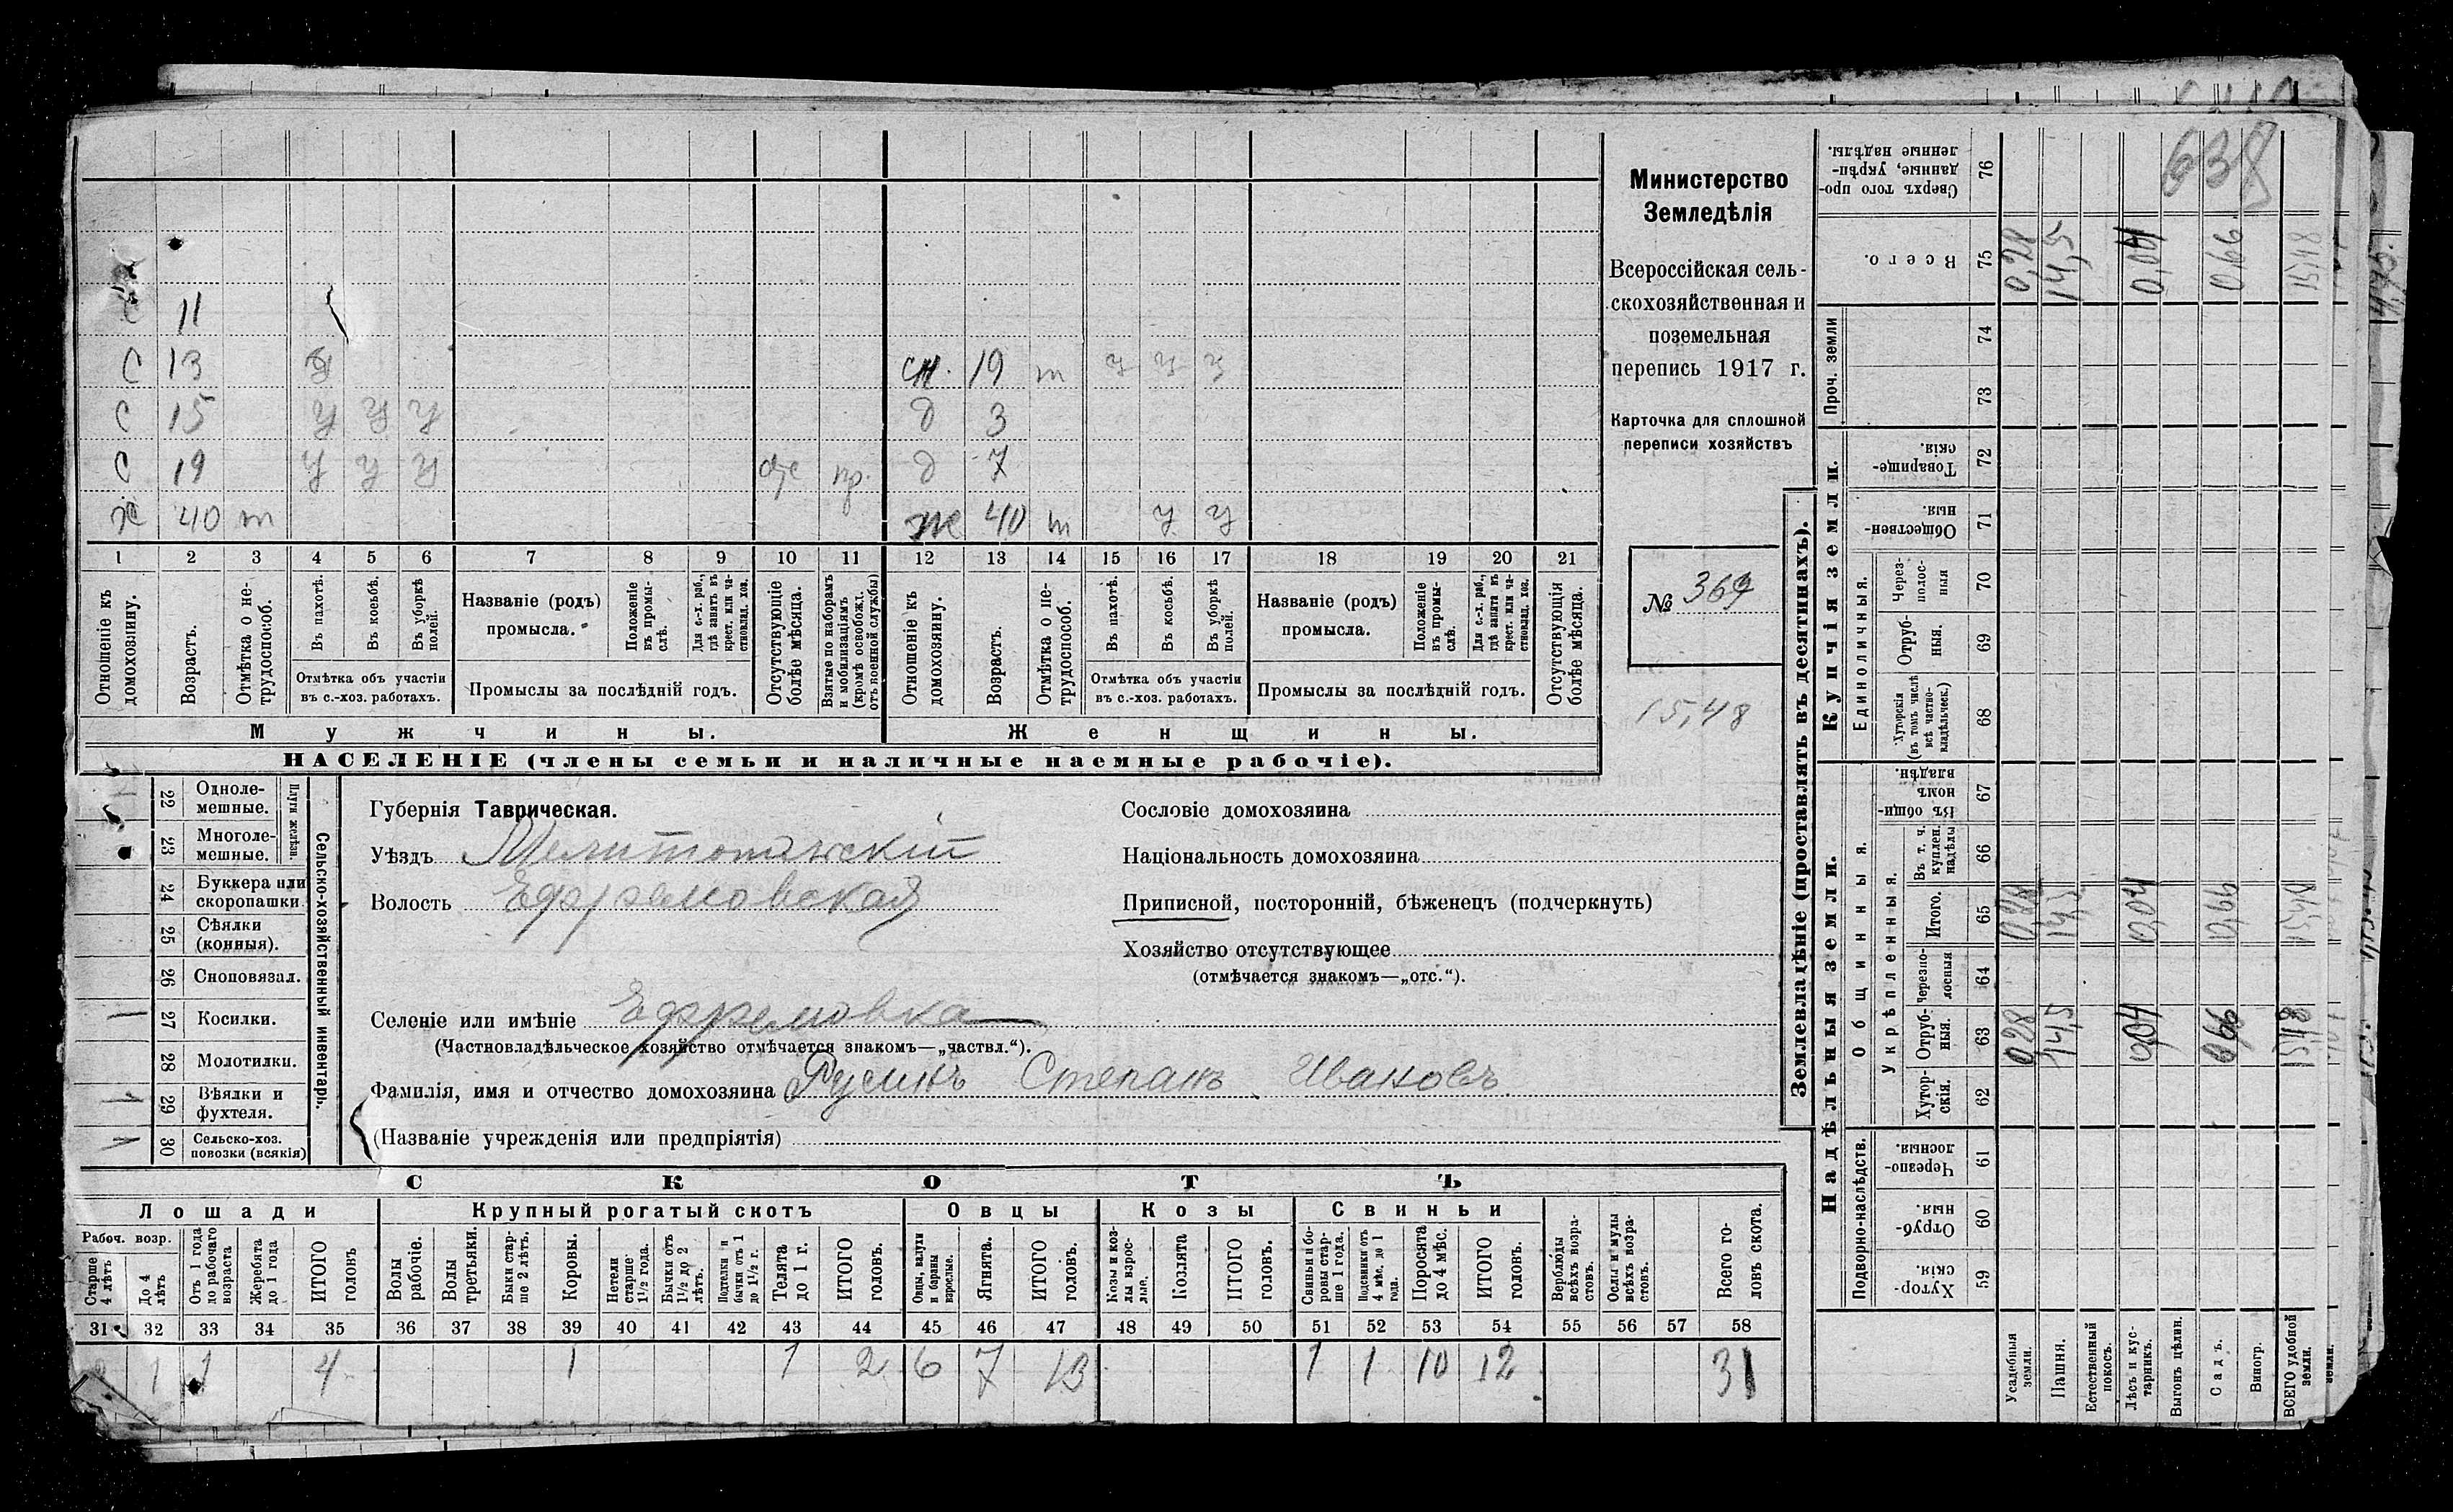 638
С 11
С 13 у сн. 19 т у у у
С 15 у у у д 3
С 19 у у у отс пр. д 7
х 40 т ж 40 т у у
1 2 3 4 5 6 7 8 9 10 11 12 13 14 15 16 17 18 19 20 21
Отношеніе къ домохозяину.
Возрастъ.
Отмѣтка о нетрудоспособ.
Въ пахотѣ.
Въ косьбѣ.
Въ уборкѣ полей.
Отмѣтка объ участіи
въ с.-хоз. работахъ.
Названіе (родъ)
промысла.
Положеніе въ промыслѣ.
Для с.-х. раб., гдѣ занятъ въ крест. или частновлад. хоз.
Промыслы за послѣдній годъ.
Отсутствующіе болѣе мѣсяца.
Взятые по наборамъ и мобилизаціямъ (кромѣ освобожд. отъ военной службы)
Отношеніе къ домохозяину.
Возрастъ.
Отмѣтка о нетрудоспособ.
Въ пахотѣ.
Въ косьбѣ.
Въ уборкѣ полей.
Отмѣтка объ участіи
въ с.-хоз. работахъ.
Названіе (родъ)
промысла.
Положеніе въ промыслѣ.
Для с.-х. раб., гдѣ занята въ крест. или частновлад. хоз.
Промыслы за послѣдній годъ.
Отсутствующія болѣе мѣсяца.
Мужчины. Женщины.
НАСЕЛЕНІЕ (члены семьи и наличные наемные рабочіе).
Министерство
Земледѣлія
Всероссійская сель-
скохозяйственная и
поземельная
перепись 1917 г.
Карточка для сплошной
переписи хозяйствъ
№ 369
15,48
Сельско-хозяйственный инвентарь.
Плуги желѣзн.
22 Однолемешные.
23 Многолемешные.
24 Буккера или скоропашки
25 Сѣялки (конныя).
26 Сноповязал.
27 Косилки. 1
28 Молотилки.
29 Вѣялки и фухтеля. 1
30 Сельско-хоз. повозки (всякія) 1
Губернія Таврическая.
Уѣздъ Мелитопольскій
Волость Ефремовская
Сословіе домохозяина
Національность домохозяина
Приписной, посторонній, бѣженецъ (подчеркнуть)
Хозяйство отсутствующее
(отмѣчается знакомъ—„отс.“).
Селеніе или имѣніе Ефремовка
(Частновладѣльческое хозяйство отмѣчается знакомъ—„частвл.“).
Фамилія, имя и отчество домохозяина Русинъ Степанъ Ивановъ
(Названіе учрежденія или предпріятія)
СКОТЪ
Лошади Крупный рогатый скотъ Овцы Козы Свиньи
Рабоч. возр.
Старше 4 лѣтъ
До 4 лѣтъ
Отъ 1 года до рабочаго возраста
Жеребята до 1 года
ИТОГО головъ
Волы рабочіе.
Волы третьяки.
Быки старше 2 лѣтъ.
Коровы.
Нетели старше 1½ года.
Бычки отъ 1½ до 2 лѣтъ.
Подтелки и бычки отъ 1 до 1½ г.
Телята до 1 г.
ИТОГО головъ.
Овцы, валухи и бараны взрослые.
Ягнята.
ИТОГО головъ.
Козы и козлы взрослые.
Козлята
ИТОГО головъ.
Свиньи и боровы старше 1 года.
Подсвинки отъ 4 мѣс. до 1 года.
Поросята до 4 мѣс.
ИТОГО головъ.
Верблюды всѣхъ возрастовъ.
Ослы и мулы всѣхъ возрастовъ.
Всего головъ скота.
31 32 33 34 35 36 37 38 39 40 41 42 43 44 45 46 47 48 49 50 51 52 53 54 55 56 57 58
1 1 4 1 1 2 6 7 13 1 1 10 12 31
Землевладѣніе (проставлять въ десятинахъ).
Надѣльныя земли. Купчія земли. Проч. земли
Подворно-наслѣдств.
Общинныя.
Укрѣпленныя.
Единоличныя.
Хуторскія. 59
Отрубныя. 60
Черезполосныя. 61
Хуторскія. 62
Отрубныя. 63
Черезполосныя 64
Итого. 65
Въ т. ч. куплен. надѣлы 66
Въ общинномъ владѣн. 67
Хуторскія (въ томъ числѣ всѣ частновладѣльческ.) 68
Отрубныя. 69
Черезполосныя 70
Общественныя. 71
Товарищескія. 72
73
74
Всего. 75
Сверхъ того проданные, укрѣпленные надѣлы. 76
Усадебныя земли. 0,28 0,28 0,28
Пашня. 14,5 14,5 14,5
Естественный покосъ.
Лѣсъ и кустарникъ. 0,04 0,04 0,04
Выгонъ цѣлин.
Садъ. 0,66 0,66 0,66
Виногр.
ВСЕГО удобной земли. 15,48 15,48 15,48